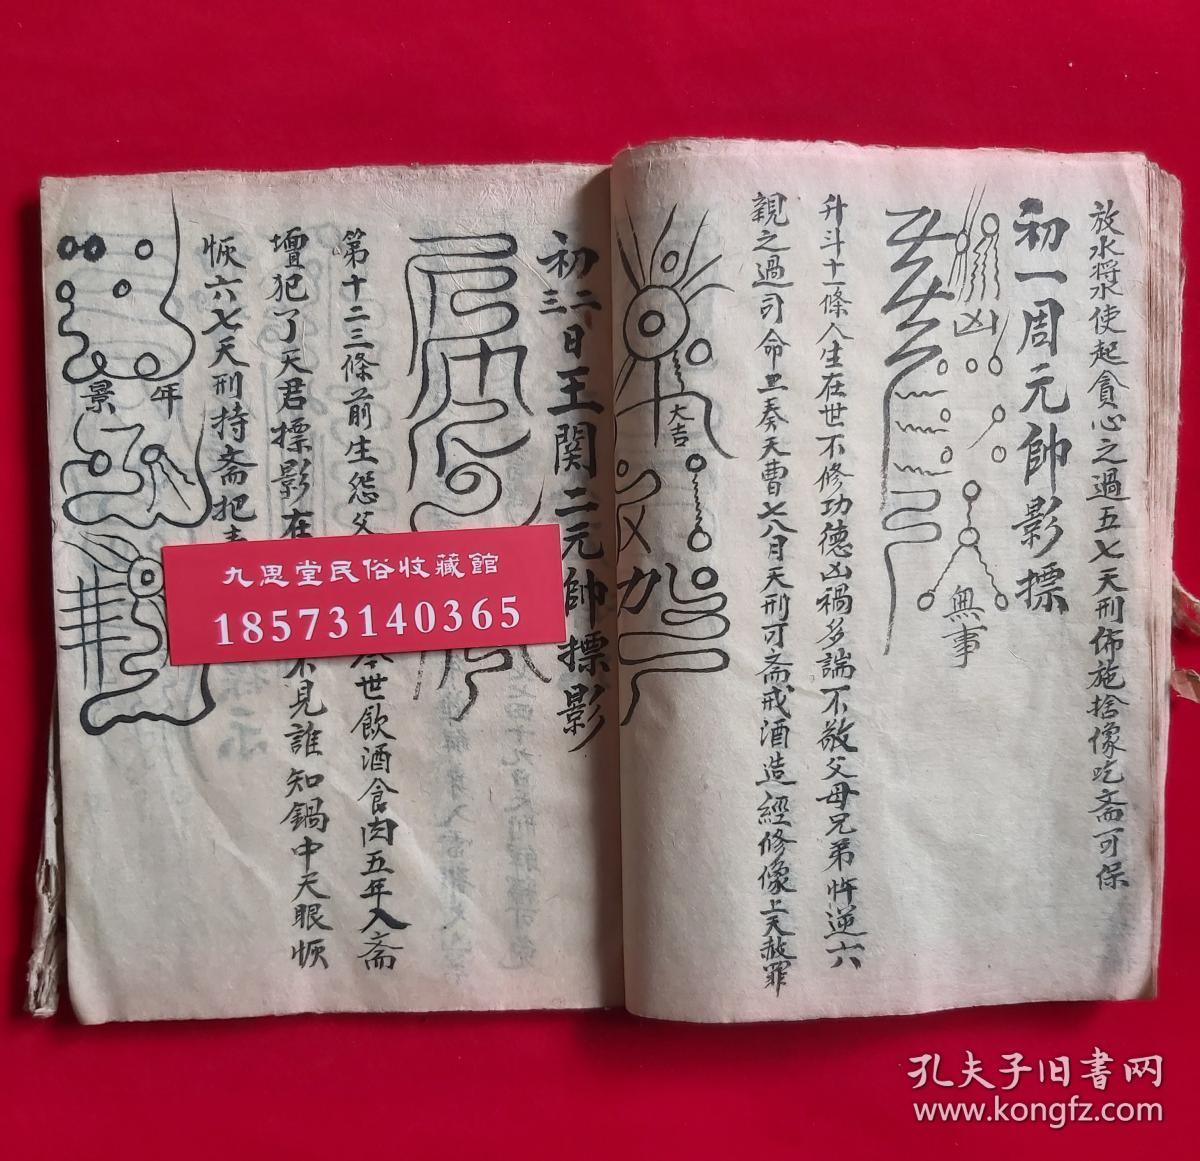 放水将水使起貪心之過五七天刑佈施捨像吃斋可保
初一周元帥影摽
凶
無事
升斗十一條人生在世不修功德凶禍多端不敬父母兄弟忤逆六
親之過司命上奏天曹七八月天刑可斋戒酒造經修像上天赦罪
大吉
初二三日王関二元帥摽影
第十二三條前生怨父
世飲酒食肉五年入斋
壇犯了天君摽影在
不見誰知鍋中天眼恢
恢六七天刑持斋把
年
景
九思堂民俗收藏館
18573140365
孔夫子旧书网
www.kongfz.com